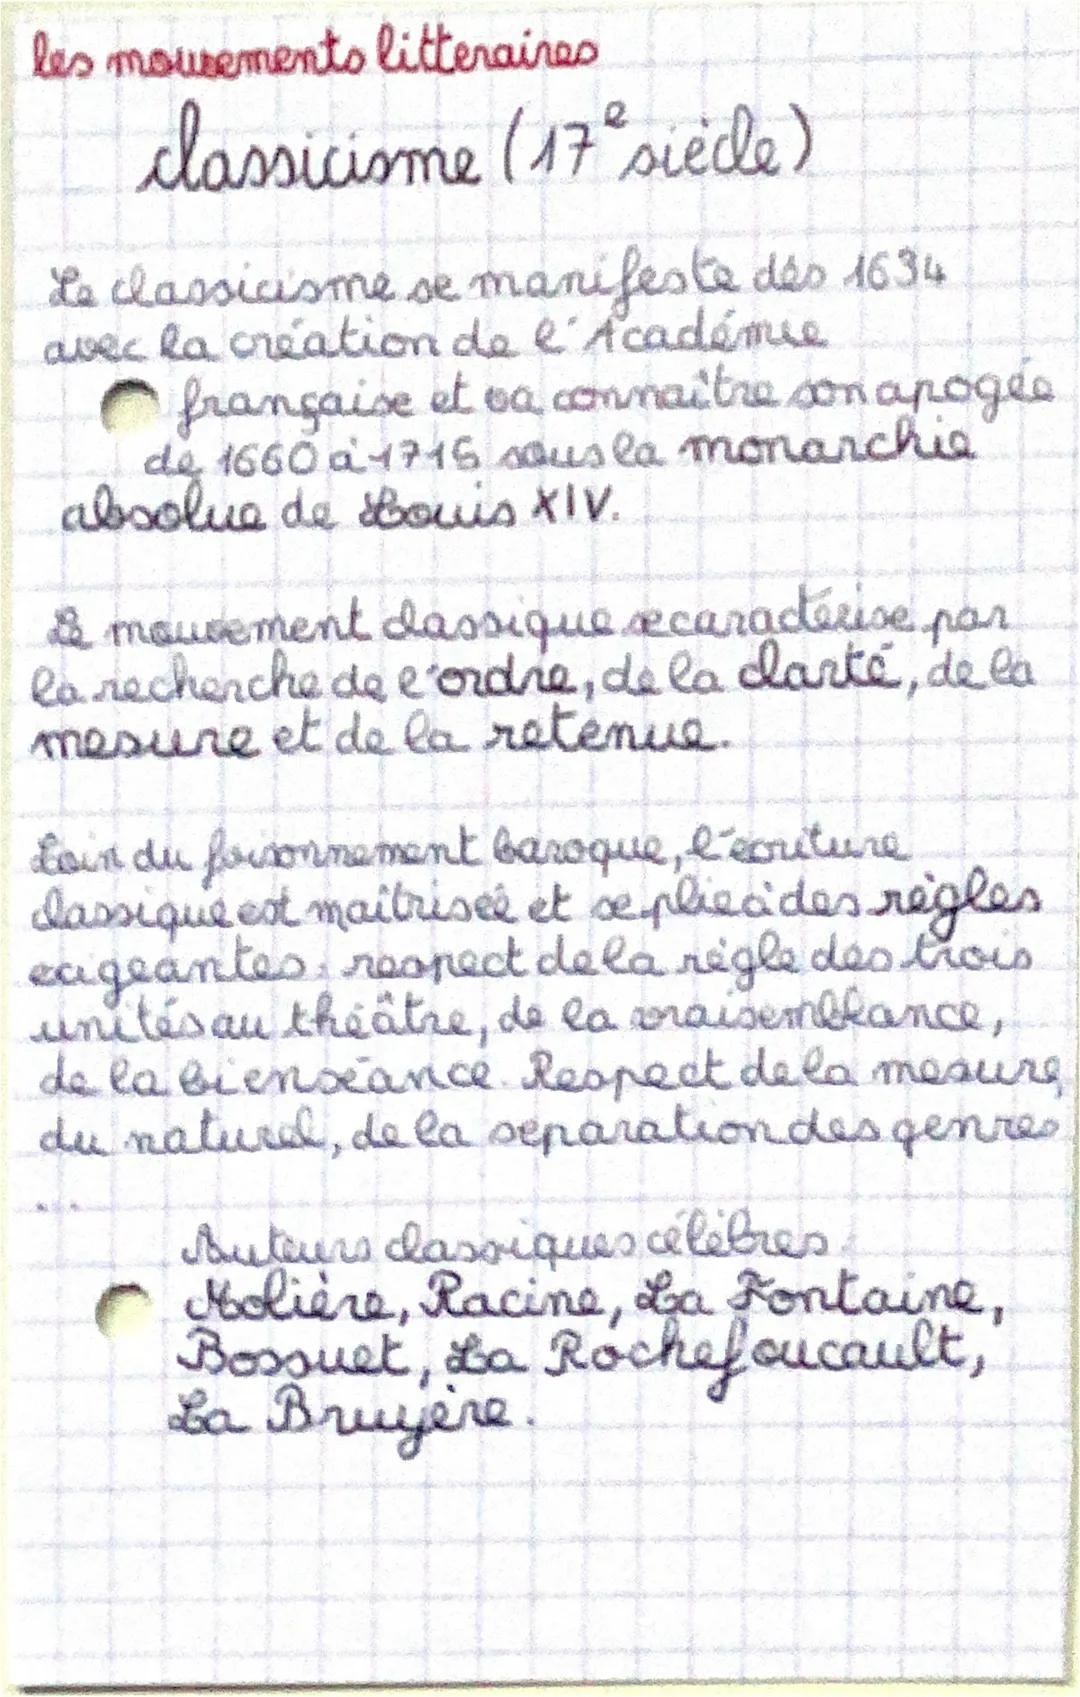 les mouvements litteraires
classicisme (17e siècle)
Le classicisme se manifeste dès 1634
avec la création de l'Académie
française et va connaître son apogée
de 1660 à 1715 sous la monarchie
absolue de Louis XIV.
Le mouvement classique se caractérise par
la recherche de l'ordre, de la clarté, de la
mesure et de la retenue.
Loin du foisonnement baroque, l'écriture
classique est maîtrisée et se plie à des règles
exigeantes : respect de la règle des trois
unités au théâtre, de la vraisemblance,
de la bienséance. Respect de la mesure,
du naturel, de la séparation des genres
...
Auteurs classiques célèbres :
Molière, Racine, La Fontaine,
Bossuet, La Rochefoucault,
La Bruyère.